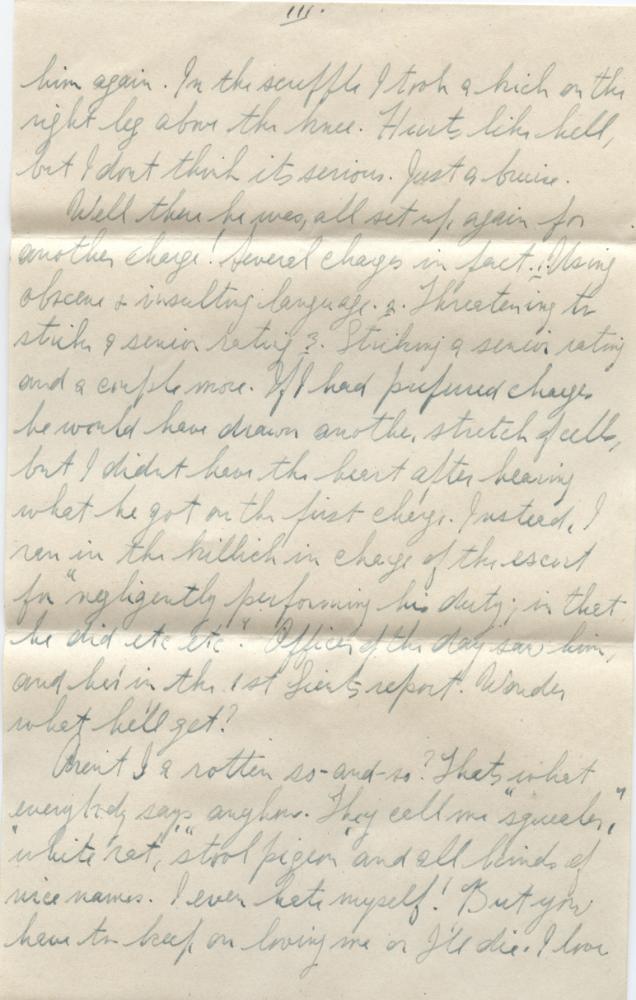 III.
him again. In the scuffle I took a kick on the
right leg above the knee. Hurts like hell,
but I dont think its serious. Just a bruise.
Well there he was, all set up again for
another charge! Several charges in fact. 1. Using
obscene & insulting language. 2. Threatening to
strike a senior rating 3. Striking a senior rating
and a couple more. If I had preferred charges
he would have drawn another stretch of cells,
but I didnt have the heart after hearing
what he got on the first charge. Instead, I
ran in the killick in charge of the escort
for "negligently performing his duty; in that
he did etc etc". Officer of the day saw him,
and he's in the 1st Lieut's report. Wonder
what he'll get?
Aren't I a rotten so-and-so? Thats what
everybody says anyhow. They call me "squealer,"
"white rat," "stool pigeon" and all kinds of
nice names. I even hate myself! But you
have to keep on loving me or I'll die. I love